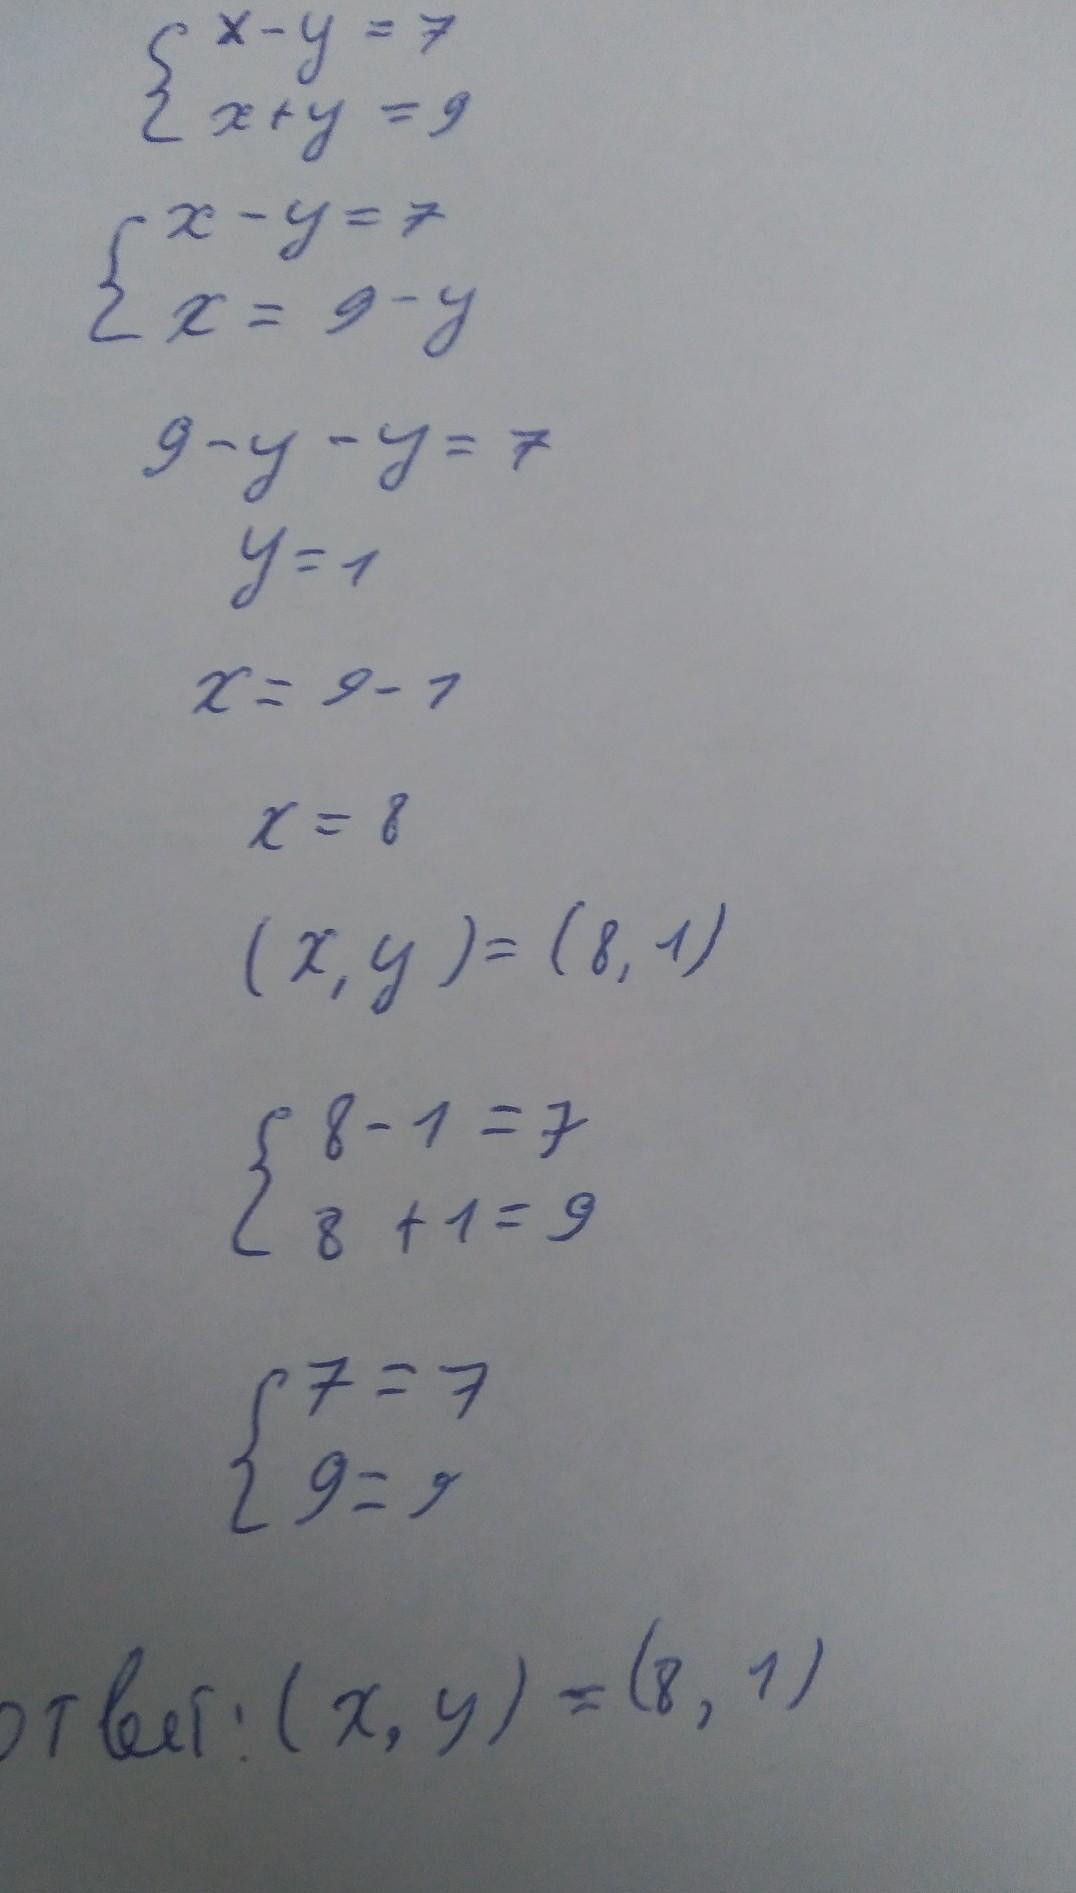 { x - y = 7
x + y = 9
{ x - y = 7
x = 9 - y
9 - y - y = 7
y = 1
x = 9 - 1
x = 8
(x, y) = (8, 1)
{ 8 - 1 = 7
8 + 1 = 9
{ 7 = 7
9 = 9
ответ: (x, y) = (8, 1)